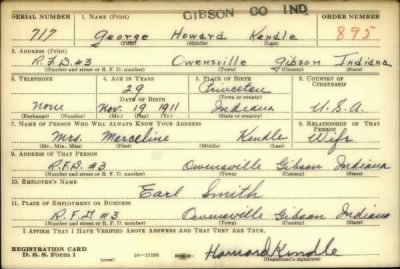 GIBSON CO IND.
SERIAL NUMBER 1. NAME (Print) ORDER NUMBER
717 George Howard Kendle 895
(First) (Middle) (Last)
2. ADDRESS (Print)
R.F.D. #3 Owensville Gibson Indiana
(Number and street or R. F. D. number) (Town) (County) (State)
3. TELEPHONE 4. AGE IN YEARS 5. PLACE OF BIRTH 6. COUNTRY OF CITIZENSHIP
29 Princeton
DATE OF BIRTH (Town or county)
None Nov. 19 1911 Indiana U.S.A.
(Exchange) (Number) (Mo.) (Day) (Yr.) (State or country)
7. NAME OF PERSON WHO WILL ALWAYS KNOW YOUR ADDRESS 8. RELATIONSHIP OF THAT PERSON
Mrs. Merceline Kendle Wife
(Mr., Mrs., Miss) (First) (Middle) (Last)
9. ADDRESS OF THAT PERSON
R.F.D. #3 Owensville Gibson Indiana
(Number and street or R. F. D. number) (Town) (County) (State)
10. EMPLOYER'S NAME
Earl Smith
11. PLACE OF EMPLOYMENT OR BUSINESS
R.F.D #3 Owensville Gibson Indiana
(Number and street or R. F. D. number) (Town) (County) (State)
I AFFIRM THAT I HAVE VERIFIED ABOVE ANSWERS AND THAT THEY ARE TRUE.
REGISTRATION CARD
D. S. S. Form 1 16—17105 Howard Kendle
(Registrant's signature)